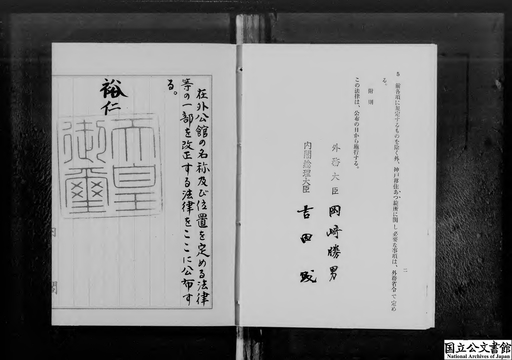 5 前各項に規定するものを除く外、神戸移住あつ旋所に関し必要な事項は、外務省令で定め
る。
附 則
この法律は、公布の日から施行する。
外務大臣 岡崎勝男
内閣総理大臣 吉田茂
在外公館の名称及び位置を定める法律
等の一部を改正する法律をここに公布す
る。
裕仁
天皇
御璽
内
閣
国立公文書館
National Archives of Japan